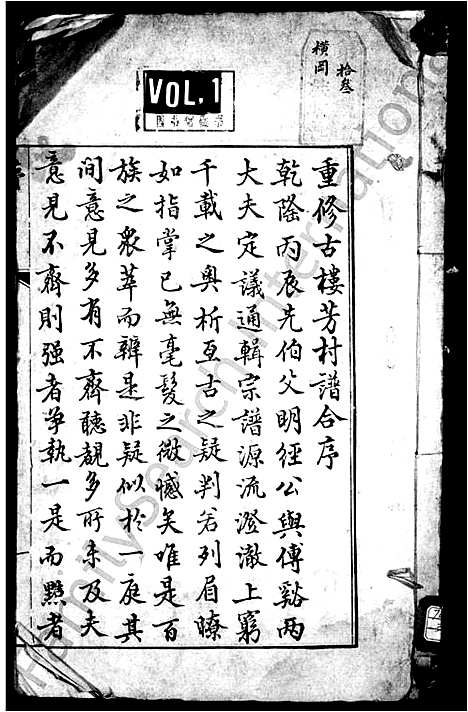 橫岡
拾叁
VOL.1
重修古樓芳村譜合序
乾隆丙辰先伯父明經公與傳谿兩
大夫定議通輯宗譜源流澄澈上窮
千載之奧析亙古之疑判若列眉瞭
如指掌已無毫髮之微憾矣唯是百
族之衆萃而辨是非疑似於一庭其
間意見多有不齊聽覩多所未及夫
意見不齊則强者爭執一是而黠者
FamilySearch International